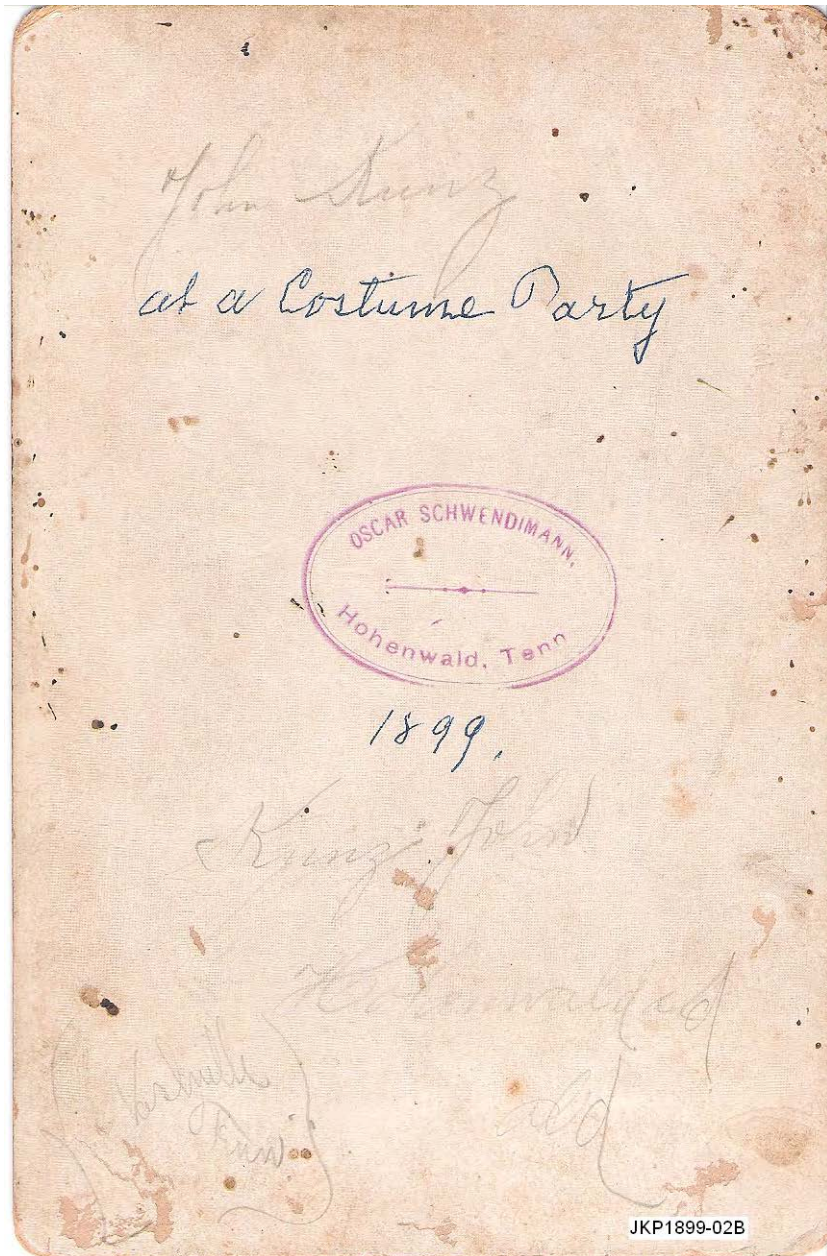 John Kunz
at a Costume Party
OSCAR SCHWENDIMANN,
Hohenwald, Tenn
1899.
Kunz John
Hohenwald
JKP1899-02B